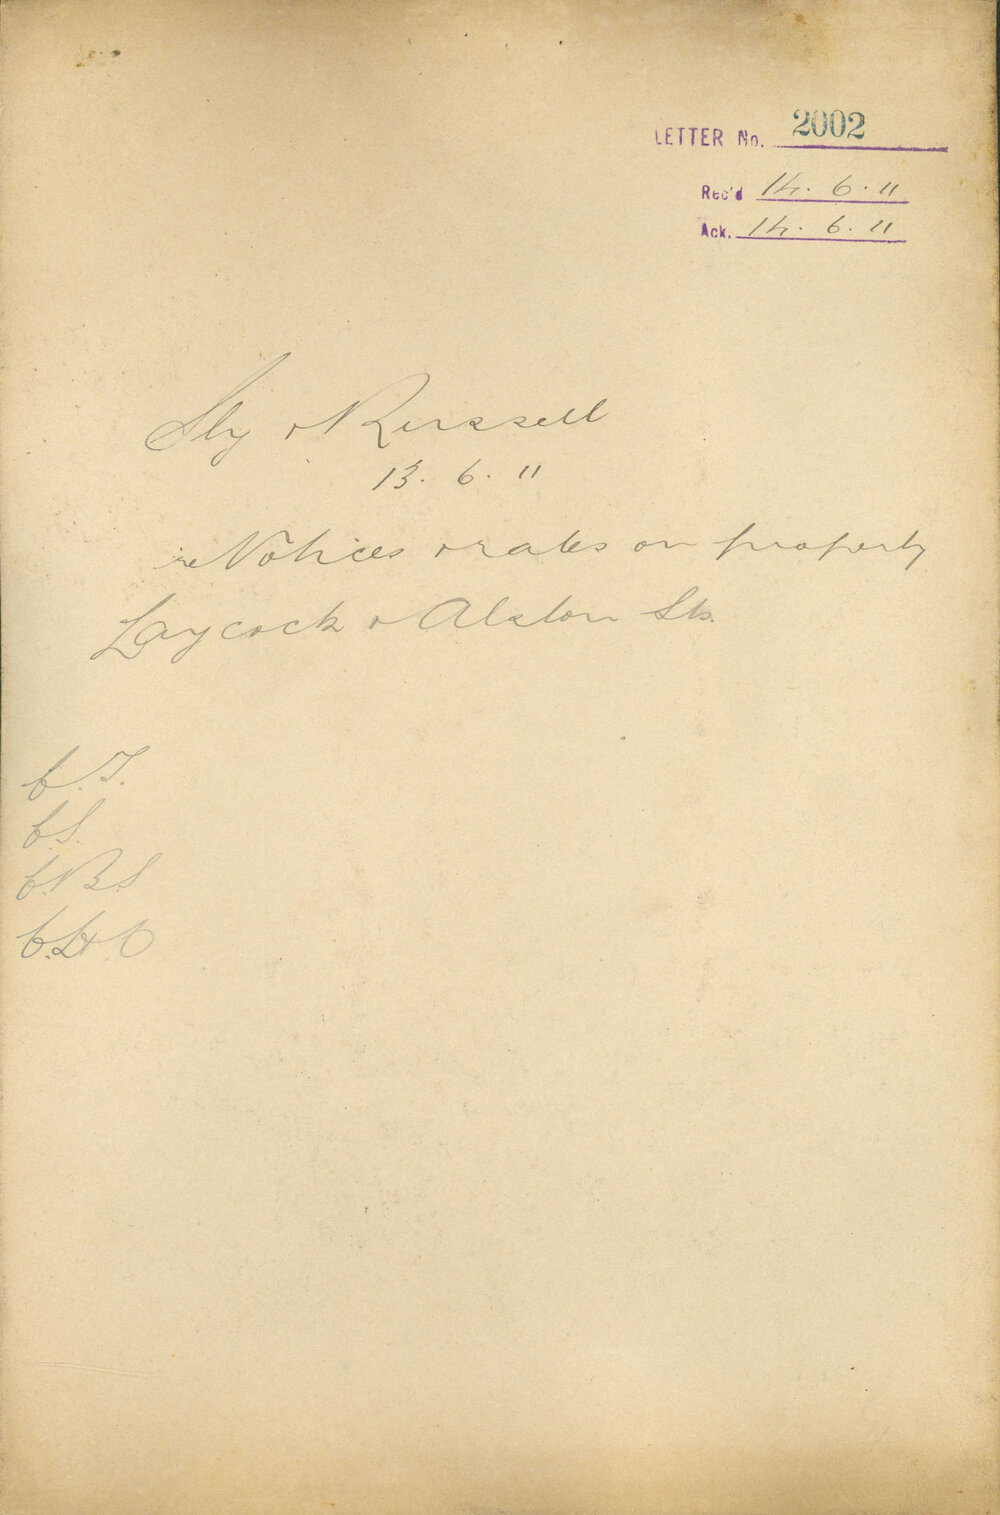 LETTER No. 2002
Rec'd 14. 6. 11
Ack. 14. 6. 11
Sly & Russell
13. 6. 11
re Notices & rates on property
Laycock & Alston Sts.
C. T.
C. S.
C. B. S